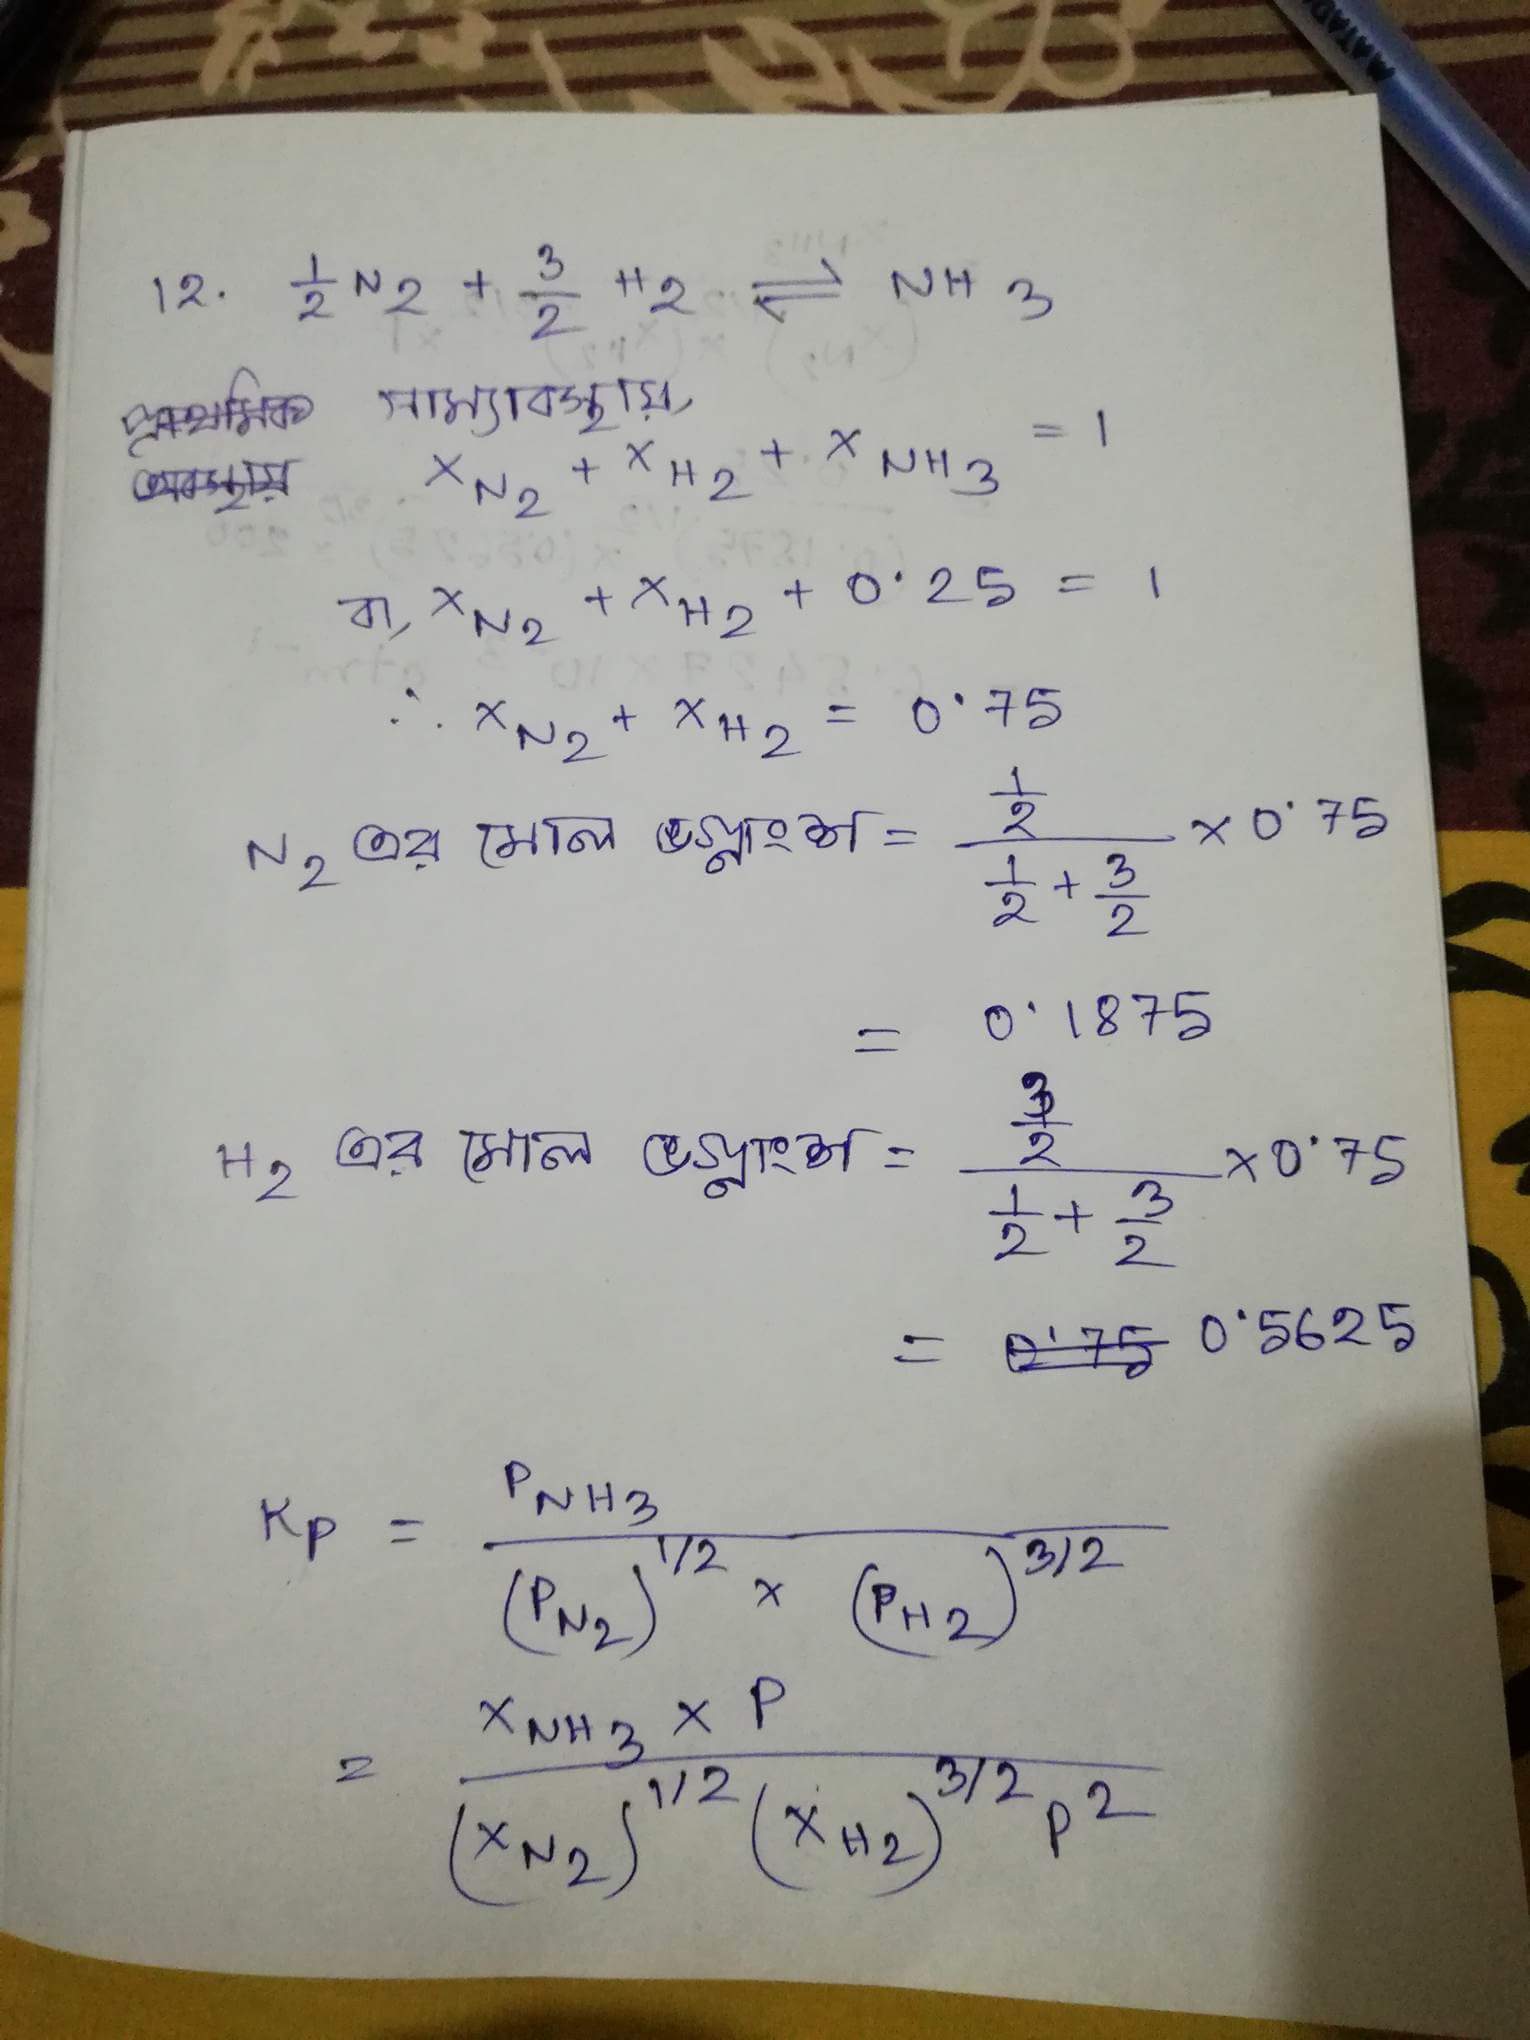 12. 1/2 N2 + 3/2 H2 ⇌ NH3
প্রাথমিক সাম্যাবস্থায়,
অবস্থায় xN2 + xH2 + xNH3 = 1
বা, xN2 + xH2 + 0.25 = 1
∴ xN2 + xH2 = 0.75
N2 এর মোল ভগ্নাংশ = (1/2)/(1/2 + 3/2) × 0.75
= 0.1875
H2 এর মোল ভগ্নাংশ = (3/2)/(1/2 + 3/2) × 0.75
= 0.75 0.5625
Kp = PNH3 / (PN2)^1/2 × (PH2)^3/2
= xNH3 × P / (xN2)^1/2 (xH2)^3/2 P^2